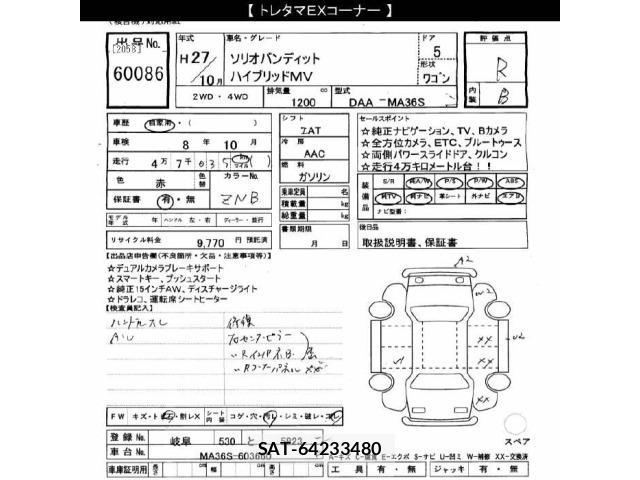 【 トレタマEXコーナー 】
出品No.
[2058]
60086
年式
H 27 / 10月
車名・グレード
ソリオバンディット
ハイブリッドMV
ドア
5
形状
ワゴン
評価点
R
内装
B
2WD・4WD
排気量
1200 cc
型式
DAA －MA36S
車歴
自家用・( )
車検
8 年 10 月
走行
4 万 7 千
色
赤
色替
カラーNo.
ZNB
保証書
有・無
モデル年式
年
ハンドル
左・右
ディーラー・並行
リサイクル料金
9,770 円 預託済
シフト
7AT
冷房
AAC
燃料
ガソリン
乗車定員 名
積載量 kg
総重量 kg
書類期限
月 日
セールスポイント
☆純正ナビゲーション、TV、Bカメラ
☆全方位カメラ、ETC、ブルートゥース
☆両側パワースライドドア、クルコン
☆走行4万キロメートル台！！
装備品
S/R 純A/W P/S P/W ABS
純TV 純ナビ 革シート 外ナビ エアB
ナビ型番:
後日品
取扱説明書、保証書
【出品店申告欄（不良箇所・欠品・注意事項等）】
☆デュアルカメラブレーキサポート
☆スマートキー、プッシュスタート
☆純正15インチAW、ディスチャージライト
☆ドラレコ、運転席シートヒーター
【検査員記入】
ハンドルスレ
修復
A2
U2
XX
XX
XX
FW
キズ・
シート内装
コゲ・穴・汚レ・シミ・破レ・スレ
スペア
登録No.
岐阜 530 と
車台No.
MA36S-603660
SAT-64233480
A-キズ
E-エクボ S-サビ U-凹ミ W-補修 XX-交換済
車庫証明用
長さ
cm
幅
cm
高さ
cm
工具 有・無
ジャッキ 有・無